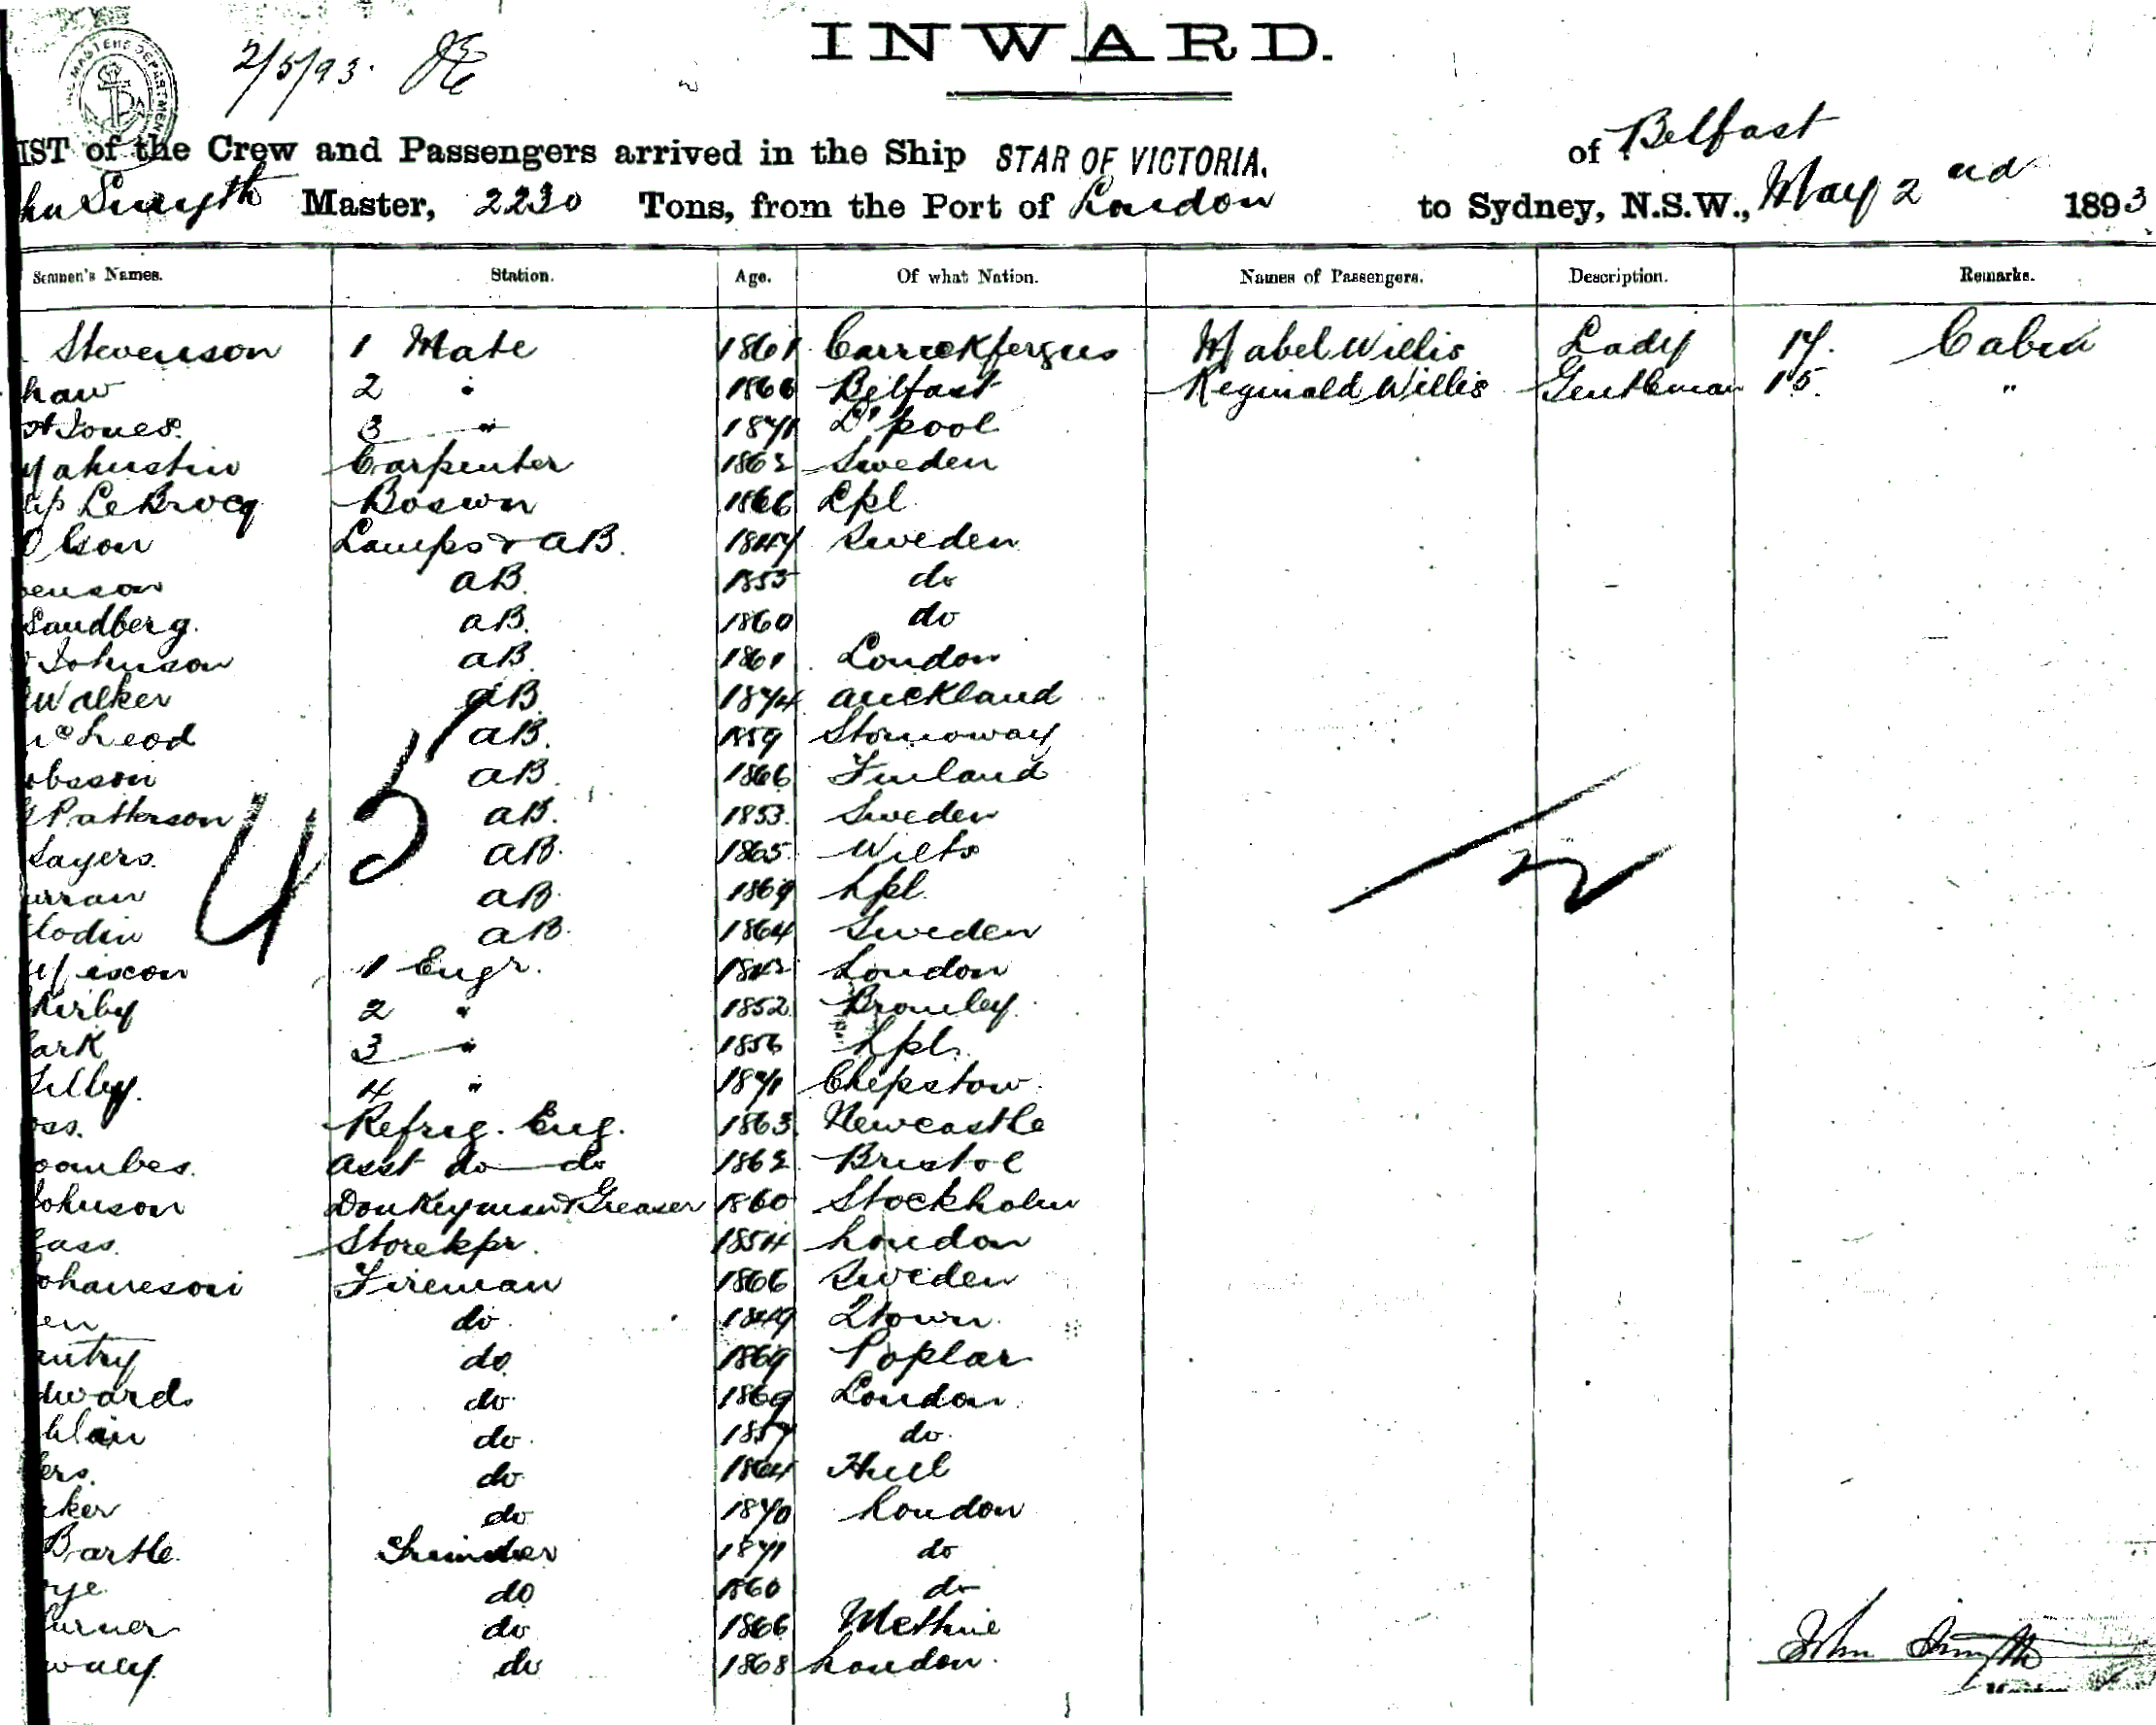 INWARD.
2/5/93.
IST of the Crew and Passengers arrived in the Ship STAR OF VICTORIA. of Belfast
hn Smyth Master, 2230 Tons, from the Port of London to Sydney, N.S.W., May 2nd 1893
Seamen's Names. Station. Age. Of what Nation. Names of Passengers. Description. Remarks.
Stevenson 1 Mate 1861 Carrickfergus Mabel Willis Lady 17. Cabin
haw 2 " 1866 Belfast Reginald Willis Gentleman 15. "
H Jones. 3 " 1871 L'pool
Carpenter 1862 Sweden
LeBrocq Boswn 1866 Lpl
Olson Lamps & AB. 1847 Sweden
enson AB. 1853 do
Sandberg. AB. 1860 do
Johnson AB. 1861 London
Walker AB. 1874 Auckland
McLeod AB. 1859 Stornoway
obsson AB. 1866 Finland
Patterson AB. 1853 Sweden
Sayers. AB. 1865 Wilts
urran AB. 1869 Lpl.
lodin AB. 1864 Sweden
1 Engr. 1842 London
Kirby 2 " 1852 Bromley
ark 3 " 1856 Lpl.
4 " 1871 Chepstow
oss. Refrig. Eng. 1863 Newcastle
oombes. Asst do do 1862 Bristol
Johnson Donkeyman & Greaser 1860 Stockholm
ass. Storekpr. 1854 London
ohanneson Fireman 1866 Sweden
en do 1849 Qtown
antry do 1869 Poplar
dwards do 1869 London
hlain do 1857 do
ers. do 1864 Hull
ker do 1870 London
Bartle Trimmer 1871 do
ye do 1860 do
urner do 1866 Methil
do 1868 London
45
2
John Smyth